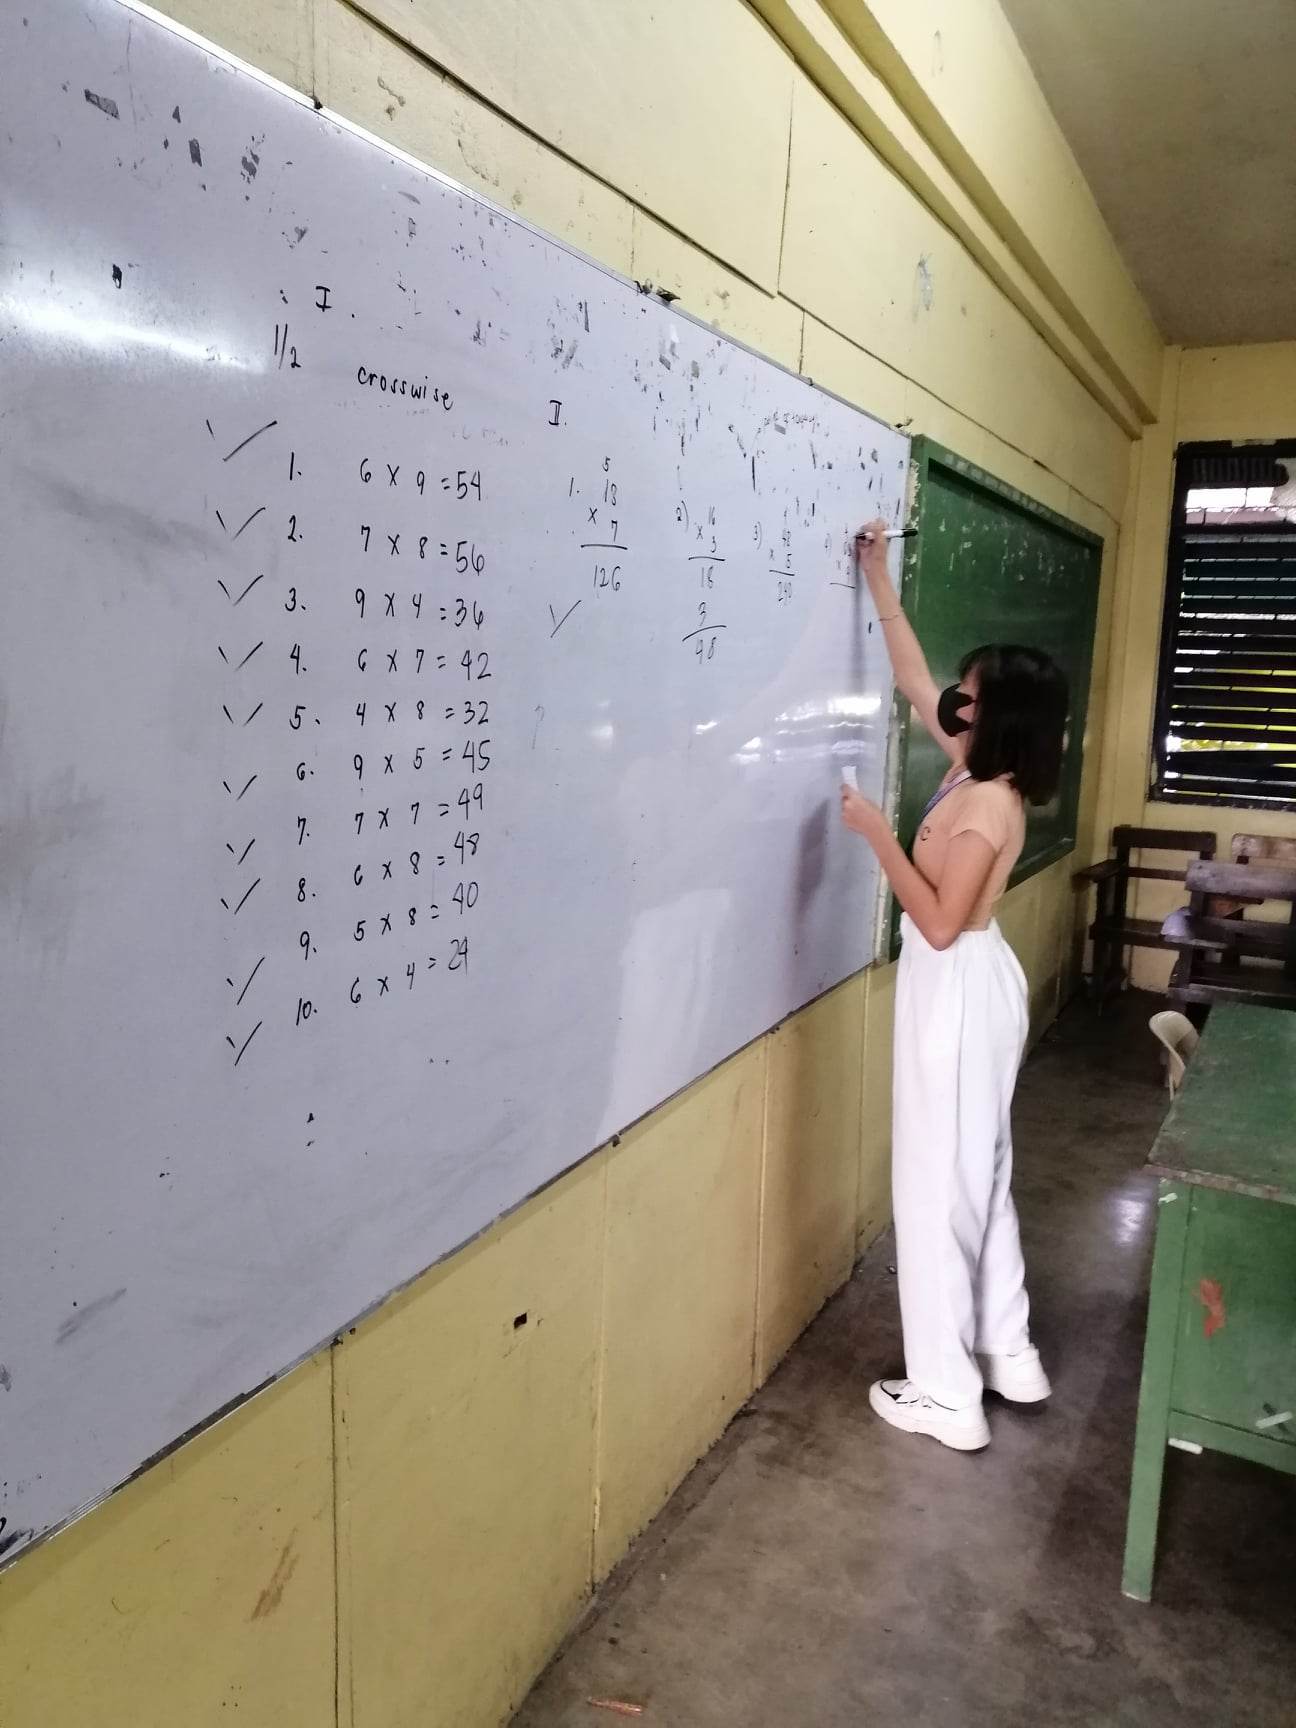 I.
1/2 crosswise
1. 6 x 9 = 54
2. 7 x 8 = 56
3. 9 x 4 = 36
4. 6 x 7 = 42
5. 4 x 8 = 32
6. 9 x 5 = 45
7. 7 x 7 = 49
8. 6 x 8 = 48
9. 5 x 8 = 40
10. 6 x 4 = 24
II.
5
1. 18
x 7
126
2) 16
x 3
18
3
48
3) 48
x 5
240
4)